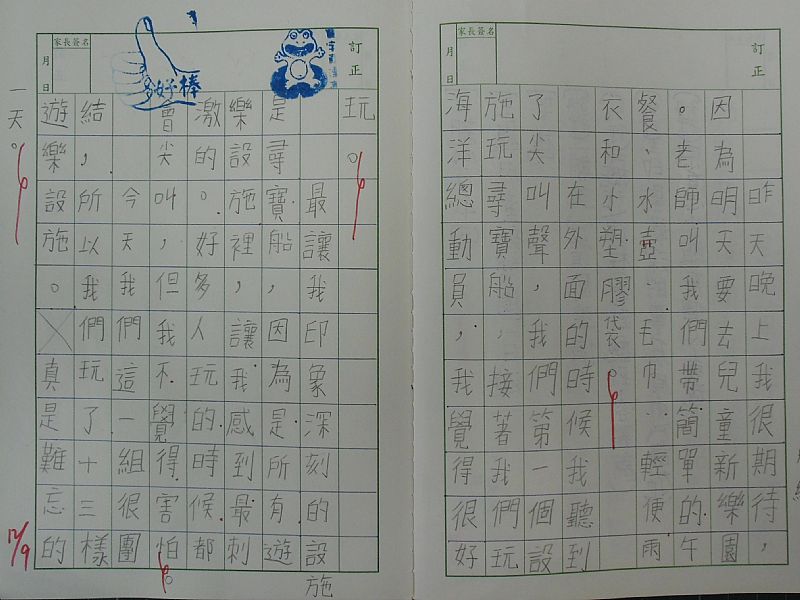 家長簽名
月 日
訂正
昨天晚上我很期待，
因為明天要去兒童新樂園
。老師叫我們帶簡單的午
餐、水壺、毛巾、輕便雨
衣和小塑膠袋。
在外面的時候我聽到
了尖叫聲，我們第一個設
施玩尋寶船，接著我們玩
海洋總動員，我覺得很好
家長簽名
月 日
訂正
好棒
玩。
最讓我印象深刻的設施
是尋寶船，因為是所有遊
樂設施裡，讓我感到最刺
激的。好多人玩的時候都
會尖叫，但我不覺得害怕。
今天我們這一組很團
結，所以我們玩了十三樣
遊樂設施。真是難忘的
一天。
12/9